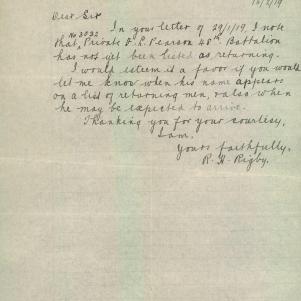 16/2/19
Dear Sir
In your letter of 29/1/19, I note
that No 3022 Private F. L. Pearson 48th Battalion
has not yet been listed as returning.
I would esteem it a favor if you would
let me know when his name appears
on a list of returning men, & also when
he may be expected to arrive.
Thanking you for your courtesy,
I am.
Yours faithfully,
R. H. Rigby.